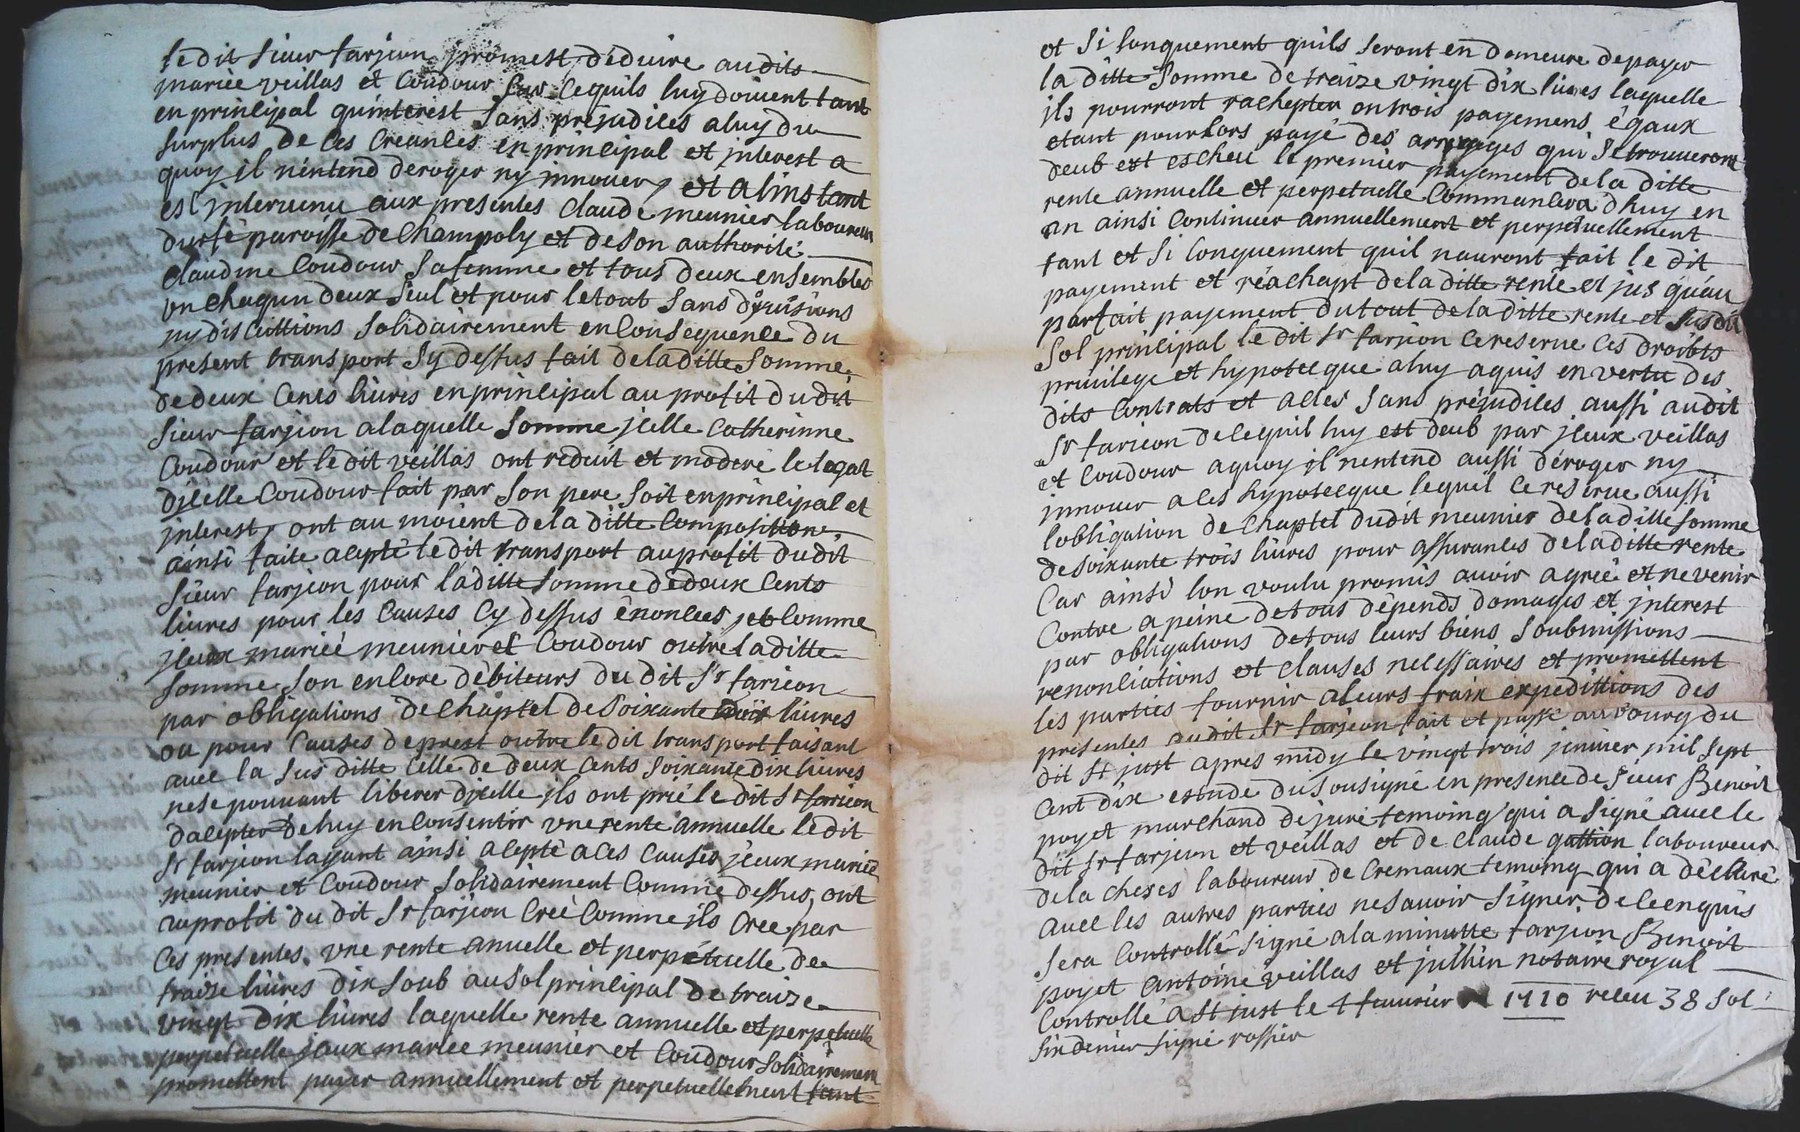 ledit sieur farjion promest déduire audits
mariée veillas et Coudour sur cequils luy doivent tant
en principal quinterest sans préjudices aluy du
surplus de ces Creances en principal et interest a
quoy il nentend deroger ny innover, et alinstant
est intervenu aux presentes claude meunier laboureur
durfé paroisse de Champoly et deson authorité
Claudine Coudour safemme et tous deux ensembles
un chaqun deux seul et pour letout sans divisions
ny discuttions solidairement en Consequence du
present transport sy dessus fait deladitte somme
dedeux Cents livres enprincipal au profit du dit
sieur farjion alaquelle somme jcelle Catherinne
Coudour et ledit veillas ont reduit et moderé le legat
djcelle Coudour fait par son pere soit enprincipal et
interest, ont au moient dela ditte Composittion,
ainsi faite acepté ledit transport auprofit du dit
sieur farjion pour laditte somme dedeux Cents
livres pour les Causes cy dessus énoncées, et Comme
jceux mariéé meunier et Coudour outre laditte
somme son encore débiteurs du dit Sr farjeon
par obligations de Chaptel de soixante trois livres
ou pour Causes deprest outre le dit transport faisant
avec la sus ditte celle de deux Cents soixante dix livres
nese pouvant liberer djcelle ils ont prié le dit Sr farjeon
dacepter deluy en Consentir une rente annuelle le dit
Sr farjeon layant ainsi acepté aces Causes jceux mariéé
meunier et Coudour solidairement Comme dessus, ont
auprofit du dit Sr farjion Creé Comme ils Cree par
Ces presentes une rente anuelle et perpétuelle de
traize livres dix soub ausol principal de traize
vingt dix livres laquelle rente annuelle et perpetuelle
perpetuelle jceux mariee meunier et Coudour solidairement
promettent payer annuellement et perpetuellement tant
et si longuement quils seront en demeure depayer
la ditte somme de traize vingt dix livres laquelle
ils pourront rachepter entrois payemens égaux
etant pourlors payé des arreyages qui se trouveront
deub et escheu le premier payement dela ditte
rente annuelle et perpetuelle Commancera d'huy en
un an ainsi Continuer annuellement et perpetuellement
tant et si longuement quil nauront fait le dit
payement et réachapt dela ditte rente et jus quau
parfait payement dutout dela ditte rente et susdit
sol principal le dit Sr farjion cereserve ces droibts
privilege et hypotecque aluy aquis en vertu des
dits Contrats et actes sans préjudices aussi audit
Sr farjeon decequil luy est deub par jceux veillas
et Coudour aquoy il nentend aussi déroger ny
innover aces hypotecque lequel cereserve aussi
lobligation de Chaptel dudit meunier dela ditte somme
desoixante trois livres pour assurances deladitte rente
Car ainsi lon voulu promis avoir agréé et nevenir
Contre apeine detous dépends domages et interest
par obligations detous leurs biens soubmissions
renonciations et clauses necessaires et promettent
les parties fournir aleurs fraix expedittions des
présentes audit Sr farjeon fait et passé aubourg du
dit St just apres midy le vingt trois janvier mil sept
Cent dix estude du sousigné en presence de sieur Benoit
poyet marchand dejuré temoing qui a signé avec le
dit Sr farjeon et veillas et de Claude gattion laboureur
dela cheres laboureur de Cremaux temoing qui a déclaré
avec les autres parties ne savoir signer, de ce enquis
sera Controllé signé ala minutte farjion Benoit
poyet antoine veillas et jullin notaire royal
Controllé a St just le 4 fevrier 1710 receu 38 sol
six denier signé rossier